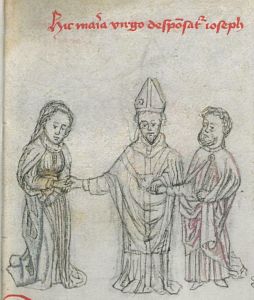 Hic maria virgo desponsat᷑ ioseph